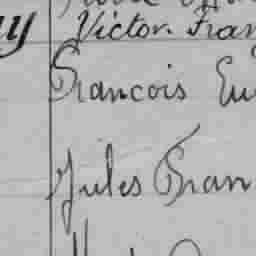 Victor. Fran
Francois Eu
Jules Fran